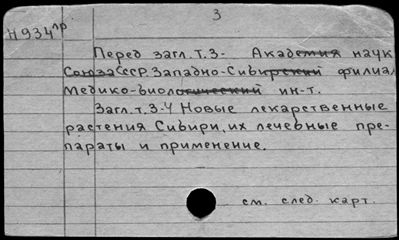 3
Н934пр.
Перед загл. т.3- Академия наук
Союза ССР. Западно-Сибирский филиал
Медико-биологический ин-т.
Загл. т.3-4 Новые лекарственные
растения Сибири, их лечебные пре-
параты и применение.
см. след. карт.